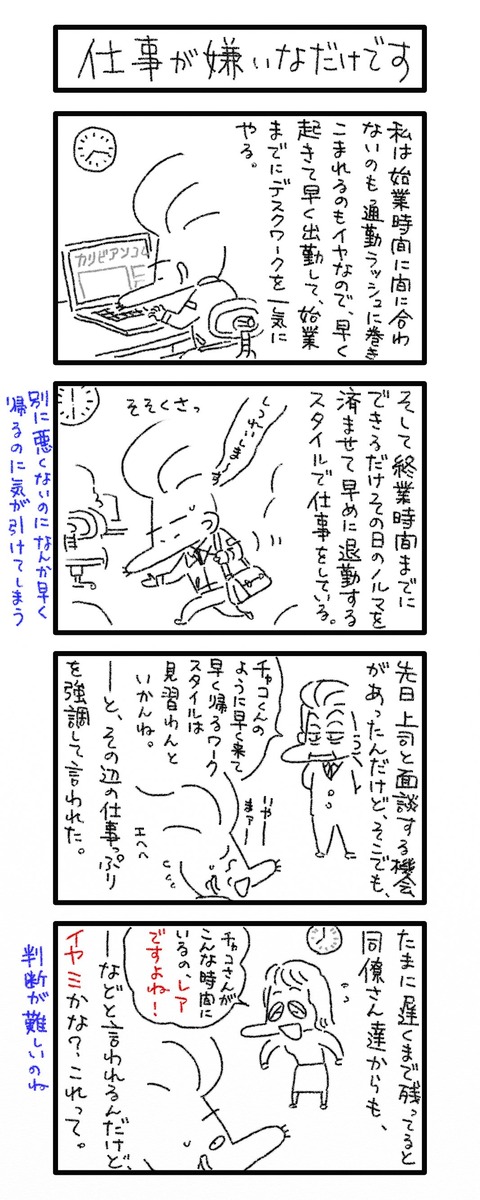 仕事が嫌いなだけです
私は始業時間に間に合わ
ないのも通勤ラッシュに巻き
こまれるのもイヤなので、早く
起きて早く出勤して、始業
までにデスクワークを一気に
やる。
カリビアンコム
そして終業時間までに
できるだけその日のノルマを
済ませて早めに退勤する
スタイルで仕事をしている。
しつれいしま〜す
そそくさっ
別に悪くないのになんか早く
帰るのに気が引けてしまう
先日上司と面談する機会
があったんだけど、そこでも、
チャコくんの
ように早く来て
早く帰るワーク
スタイルは
見習わんと
いかんね。
いやー
まァー
エヘヘ
ーと、その辺の仕事っぷり
を強調して言われた。
たまに遅くまで残ってると
同僚さん達からも、
チャコさんが
こんな時間に
いるの、レア
ですよね!
ーなどと言われるんだけど、
イヤミかな?これって。
判断が難しいのね